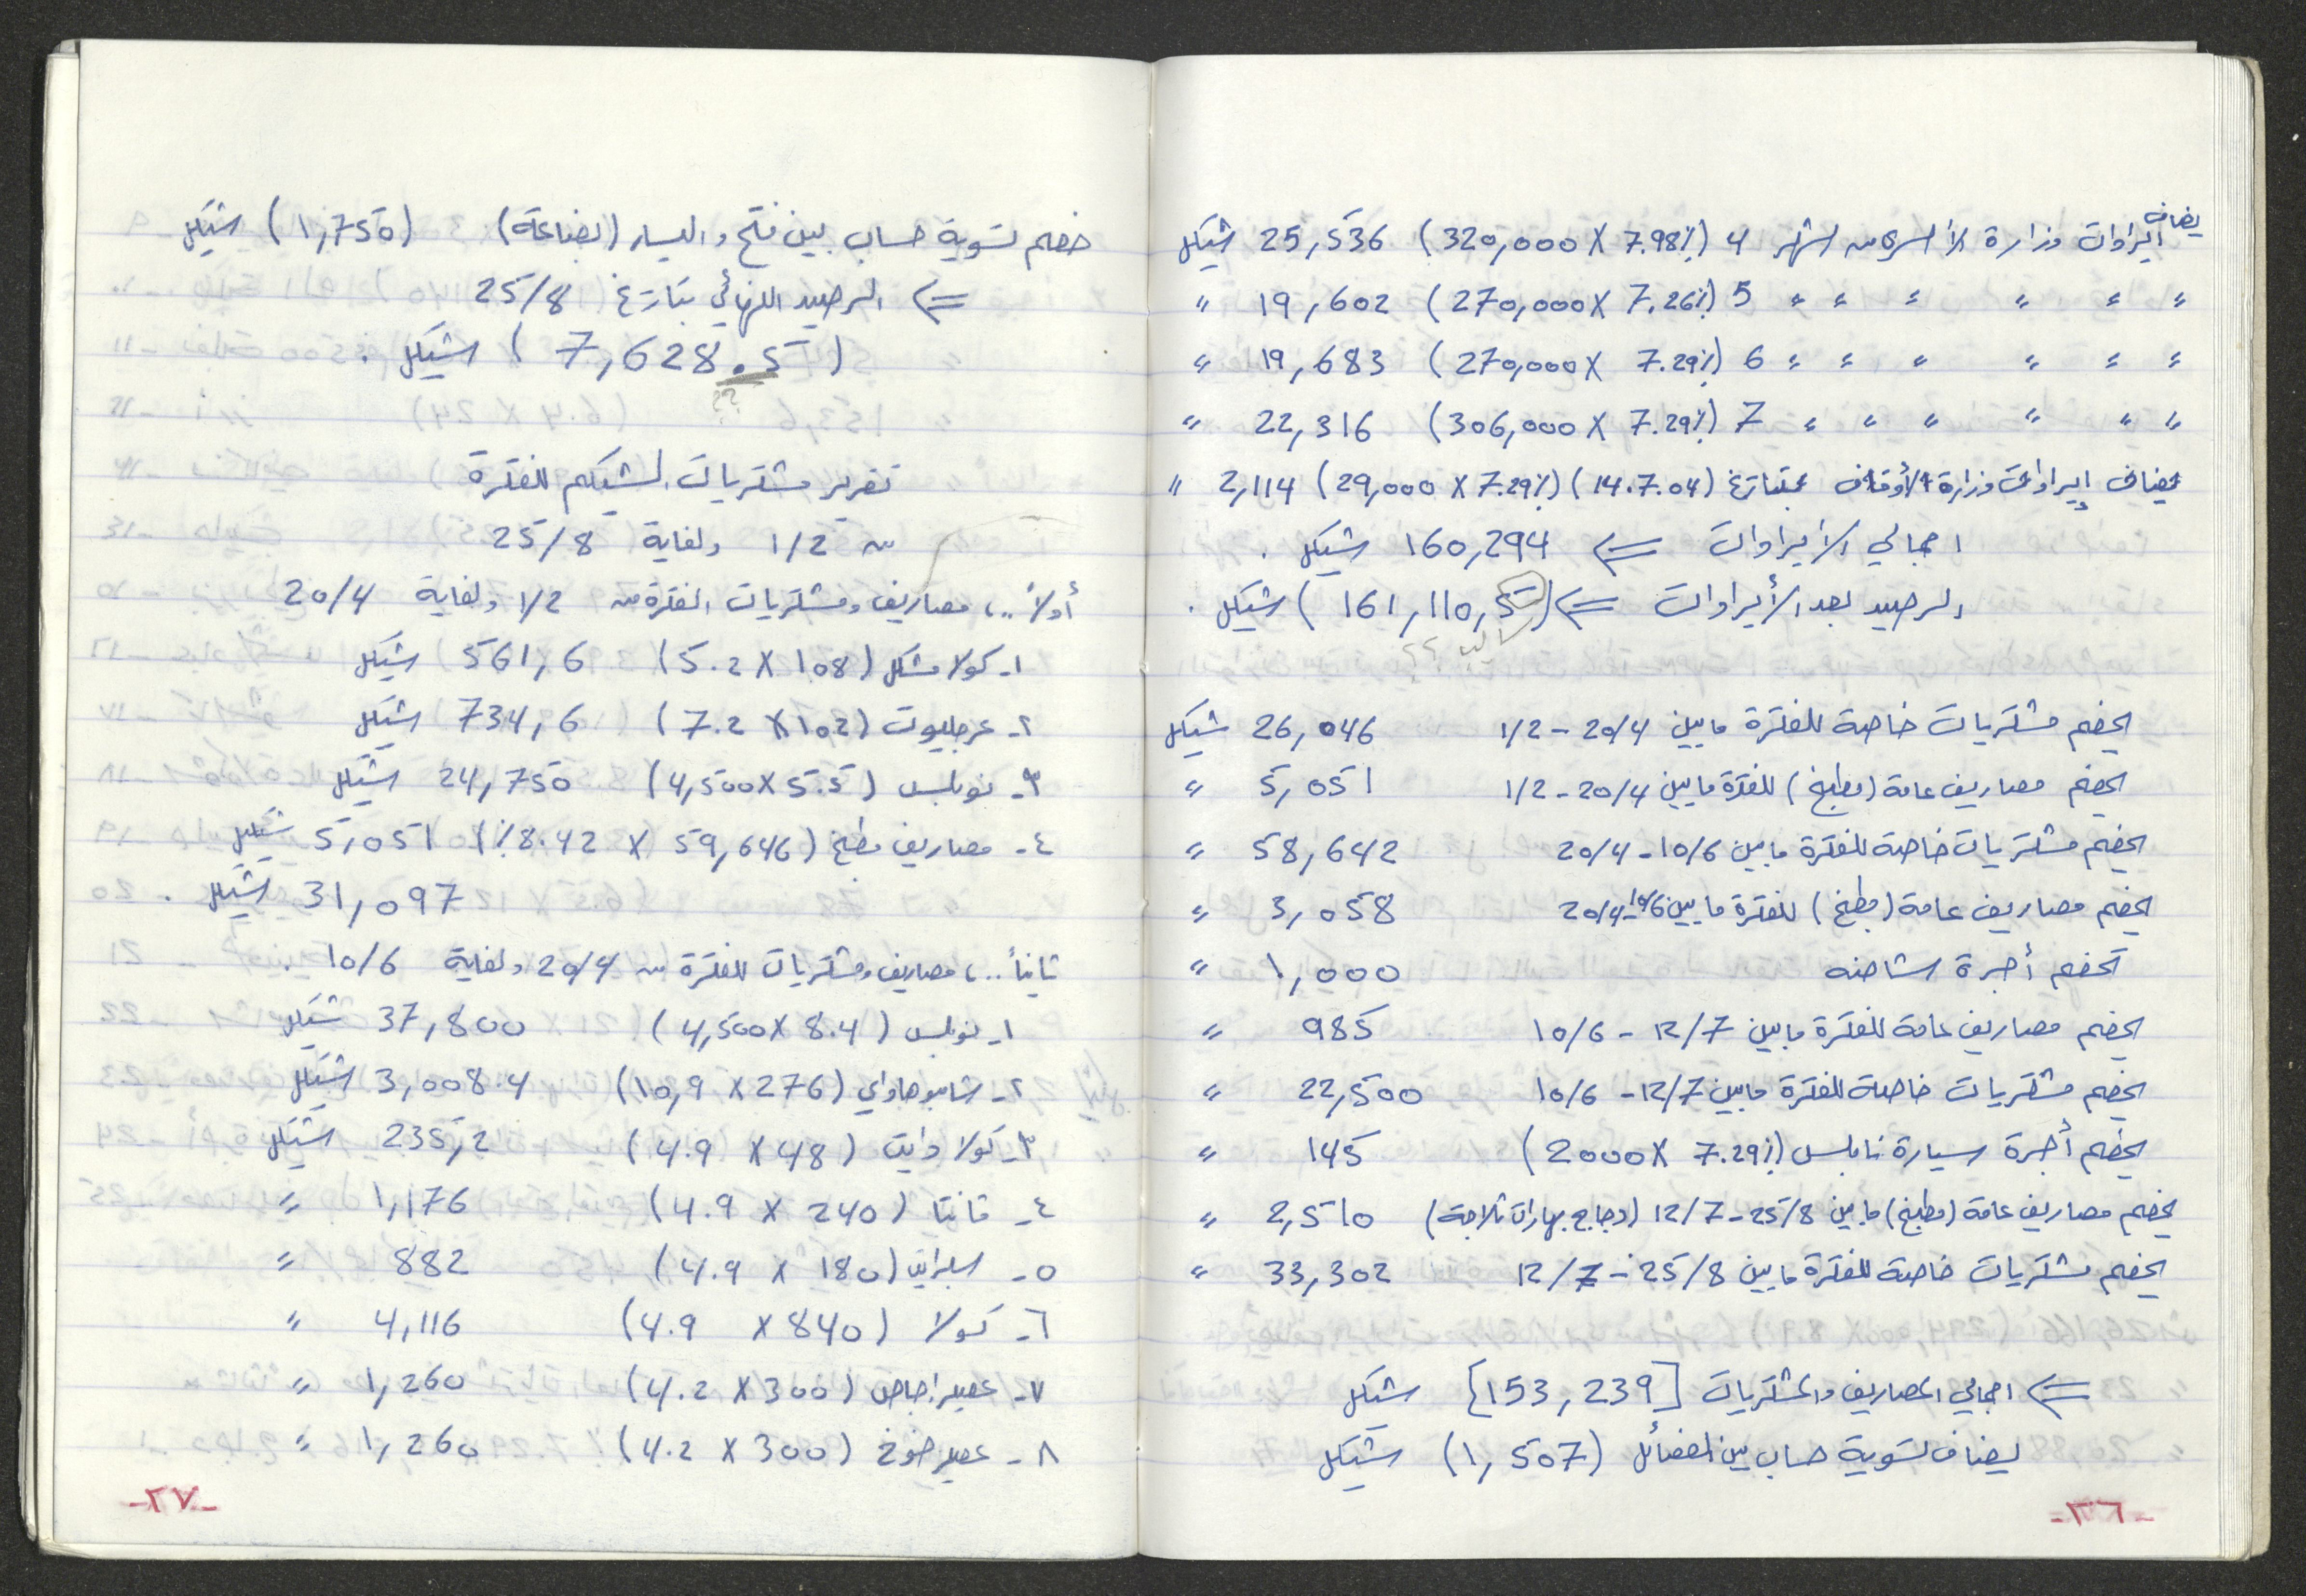 يضاف إيراوات وزارة الأسرى من شهر 4 (320,000 X 7.98%) 25,536 شيكل
" " " " " " 5 (270,000 X 7.26%) 19,602 "
" " " " " " 6 (270,000 X 7.29%) 19,683 "
" " " " " " 7 (306,000 X 7.29%) 22,316 "
يضاف إيراوات وزارة الأوقاف بتاريخ (14.7.04) (29,000 X 7.29%) 2,114 "
اجمالي الأيراوات <= 160,294 شيكل .
الرصيد بعد الأيراوات <= (161,110,5) شيكل .
؟؟
يخصم مشتريات خاصة للفترة ما بين 20/4 - 1/2 26,046 شيكل
يخصم مصاريف عامة (مطبخ) للفترة ما بين 20/4 - 1/2 5,051 "
يخصم مشتريات خاصة للفترة ما بين 10/6 - 20/4 58,642 "
يخصم مصاريف عامة (مطبخ) للفترة ما بين 10/6 - 20/4 3,058 "
يخصم أجرة الشاحنه 1,000 "
يخصم مصاريف عامة للفترة ما بين 12/7 - 10/6 985 "
يخصم مشتريات خاصة للفترة ما بين 12/7 - 10/6 22,500 "
يخصم أجرة سيارة نابلس (2000 X 7.29%) 145 "
يخصم مصاريف عامة (مطبخ) ما بين 25/8 - 12/7 (دجاج بهارات ثلاجة) 2,510 "
يخصم مشتريات خاصة للفترة ما بين 25/8 - 12/7 33,302 "
<= اجمالي المصاريف والمشتريات [153,239] شيكل
يضاف تسوية حساب بين الفصائل (1,507) شيكل
-٢٦-
خصم تسوية حساب بين فتح و اليسار (بضاعة) (1,750) شيكل
<= الرصيد النهائي بتاريخ 25/8
(7,628.5) شيكل .
؟؟
تقرير مشتريات الشيكم للفترة
من 1/2 ولغاية 25/8
أولاً .. ، مصاريف ومشتريات الفترة من 1/2 ولغاية 20/4
١- كولا مشكل (108 X 5.2) 561,6 شيكل
٢- عرجليوت (102 X 7.2) 734,6 شيكل
٣- نوبلس (5.5 X 4,500) 24,750 شيكل
٤- مصاريف مطبخ (59,646 X 8.42%) 5,051 شيكل
31,097 شيكل .
ثانياً .. ، مصاريف ومشتريات للفترة من 20/4 ولغاية 10/6 .
١- نوبلس (8.4 X 4,500) 37,800 شيكل
٢- شامبو هاواي (276 X 10,9) 3,008.4 شيكل
٣- كولا دايت (48 X 4.9) 235,2 شيكل
٤- فانتا (240 X 4.9) 1,176 "
٥- سبرايت (180 X 4.9) 882 "
٦- كولا (840 X 4.9) 4,116 "
٧- عصير اجاص (300 X 4.2) 1,260 "
٨- عصير خوخ (300 X 4.2) 1,260 "
-٢٧-